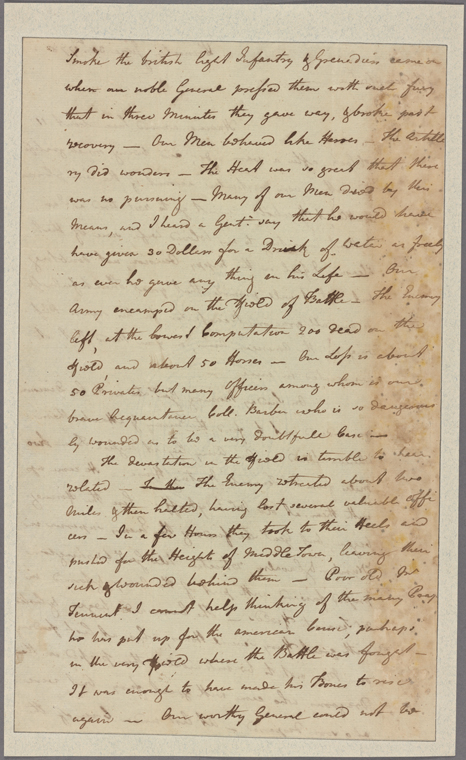 Smoke the british light Infantry & Grenadiers came on
when our noble General pressed them with such fury
that in three Minutes they gave way, & broke past
recovery — Our Men behaved like Heroes — The Artille
ry did wonders — The Heat was so great that there
was no pursuing — Many of our Men Died by this
Means, and I heard a Gent. say that he would have
have given 30 Dollars for a Drink of Water as freely
as ever he gave any thing in his Life — Our
Army encamped on the Field of Battle — The Enemy
left, at the lowest Computation 200 dead on the
Field, and about 50 Horses — Our Loss is about
50 Privates but many Officers among whom is our
brave Acquaintance Coll. Barber who is so dangerous
ly wounded as to be a very doubtfull Case —
The devastation in the Field is terrible to hear
related — In the The Enemy retreated about two
Miles & then halted, having lost several valuable Offi
cers — In a few Hours they took to their Heels and
pushed for the Heights of Middle Town, leaving their
sick & wounded behind them — Poor old Mr
Tennent I cannot help thinking of the many Pray
he has put up for the american Cause, perhaps
in the very Field where the Battle was fought —
It was enough to have made his Bones to rise
again — Our worthy General could not be